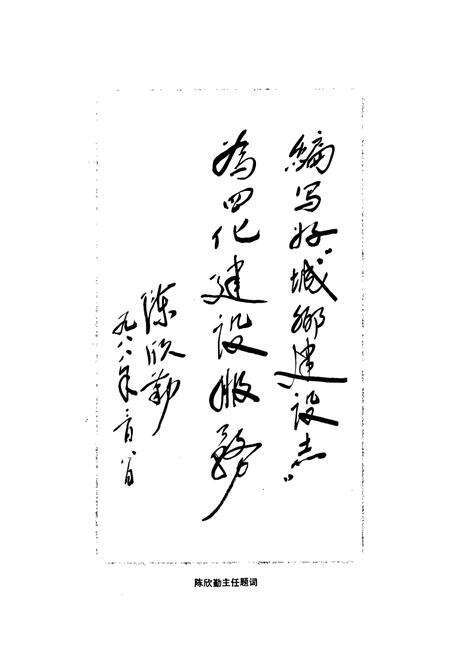 编写好“城鄉建设志”
為四化建设服務
陈欣勤
一九八八年一月八日
陈欣勤主任题词